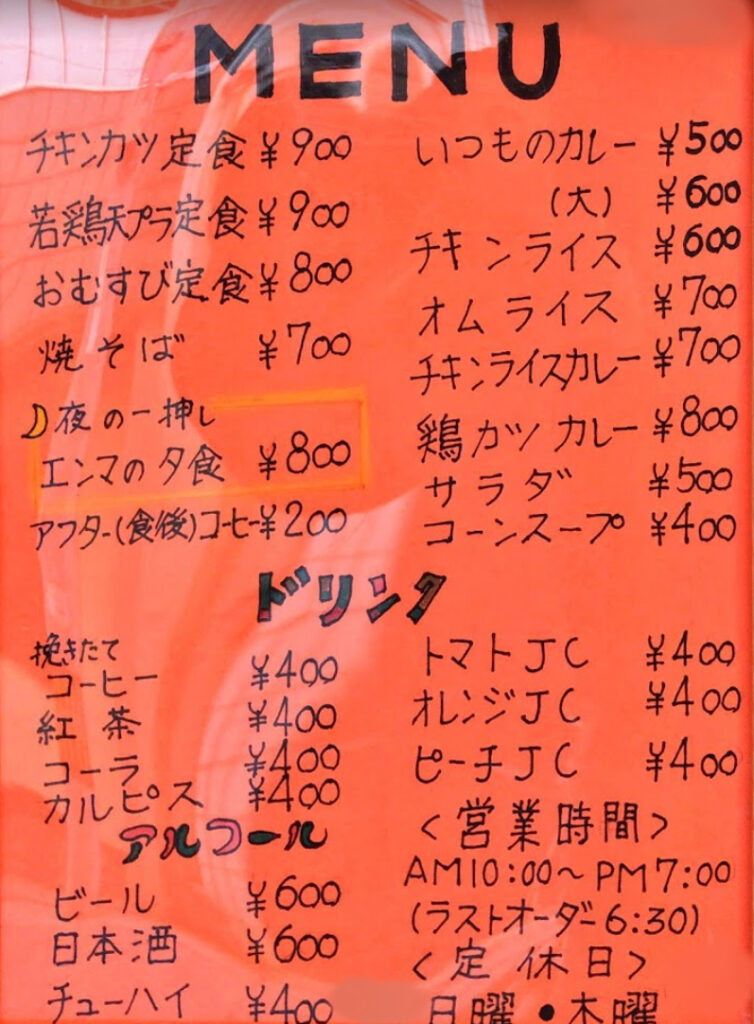 MENU
チキンカツ定食 ¥900
若鶏天プラ定食 ¥900
おむすび定食 ¥800
焼そば ¥700
夜の一押し
エンマの夕食 ¥800
アフター(食後)コーヒー ¥200
いつものカレー ¥500
(大) ¥600
チキンライス ¥600
オムライス ¥700
チキンライスカレー ¥700
鶏カツカレー ¥800
サラダ ¥500
コーンスープ ¥400
ドリンク
挽きたて
コーヒー ¥400
紅茶 ¥400
コーラ ¥400
カルピス ¥400
トマトJC ¥400
オレンジJC ¥400
ピーチJC ¥400
アルコール
ビール ¥600
日本酒 ¥600
チューハイ ¥400
<営業時間>
AM10:00~PM7:00
(ラストオーダー6:30)
<定休日>
日曜・木曜